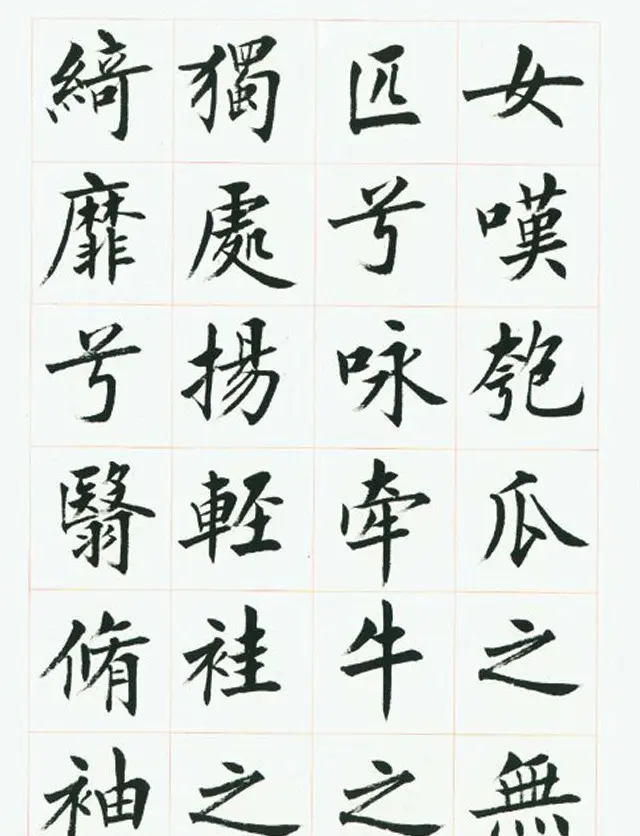 女嘆匏瓜之無
匹兮咏牽牛之
獨處揚輕袿之
綺靡兮翳脩袖